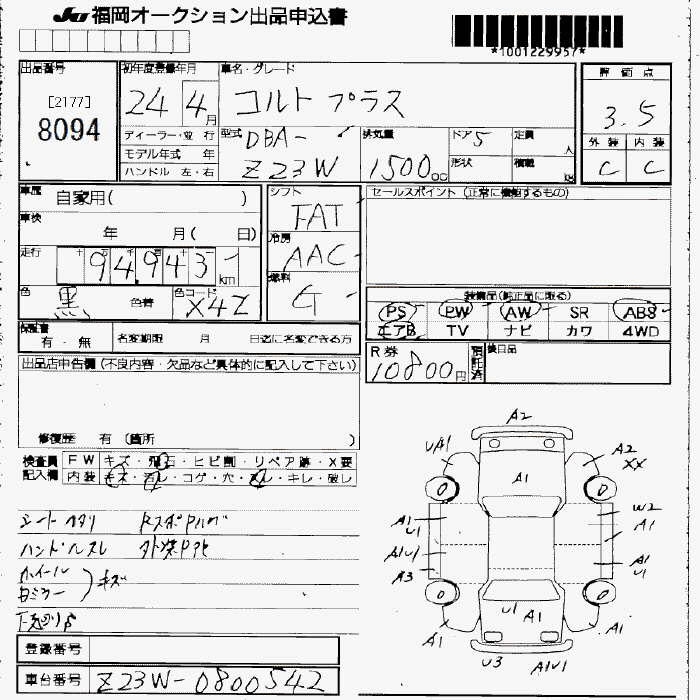 JU 福岡オークション出品申込書
*1001229957*
出品番号
[2177]
8094
初年度登録年月
24 4月
ディーラー・並 行
モデル年式 年
ハンドル 左・右
車名・グレード
コルト プラス
型式 DBA-
Z23W
排気量
1500cc
ドア 5
定員 人
形状
積載 kg
評価点
3.5
外装 内装
C C
車歴 自家用( )
車検
年 月( 日)
走行
十 万 千
94,943 km
色 黒 色替
色コード X42
シフト
FAT
冷房
AAC
燃料
G
セールスポイント (正常に機能するもの)
装備品(純正品に限る)
PS PW AW SR ABS
エアB TV ナビ カワ 4WD
保証書
有・無
名変期限 月 日迄に名変できる方
R券
10800円
預託済
後日品
出品店申告欄(不良内容・欠品など具体的に記入して下さい)
修復歴 有 (箇所 )
検査員記入欄
FW キズ・飛石・ヒビ割・リペア跡・X要
内装 キズ・汚レ・コゲ・穴・スレ・キレ・破レ
シートヘタリ
ハンドルスレ
ホイール
キズ
A2
UA1
A2
XX
A1
W2
A1
A1
U1
A1U1
A3
A1
U1
U1 A1
A1
A1
U3
A1U1
登録番号
車台番号 Z23W-0800542